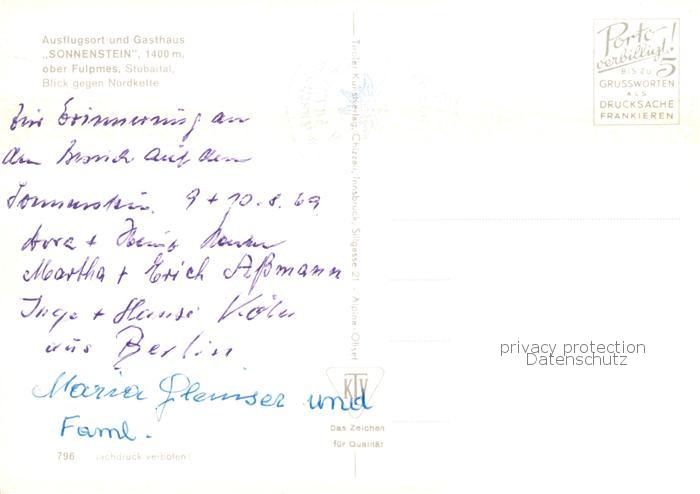 Ausflugsort und Gasthaus
„SONNENSTEIN", 1400 m,
ober Fulpmes, Stubaital,
Blick gegen Nordkette
Zur Erinnerung an
den Besuch auf dem
Sonnenstein. 9 + 10.8.69
Dora + Heinz
Martha + Erich Aßmann
Inge + Hansi Köln
aus Berlin
Maria und
Faml.
796 Nachdruck verboten!
Tiroler Kunstverlag, Chizzali, Innsbruck, Sillgasse 21 · Alpina-Offset
KTV
Das Zeichen
für Qualität
Porto
verbilligt!
BIS ZU 5
GRUSSWORTEN
ALS
DRUCKSACHE
FRANKIEREN
privacy protection
Datenschutz